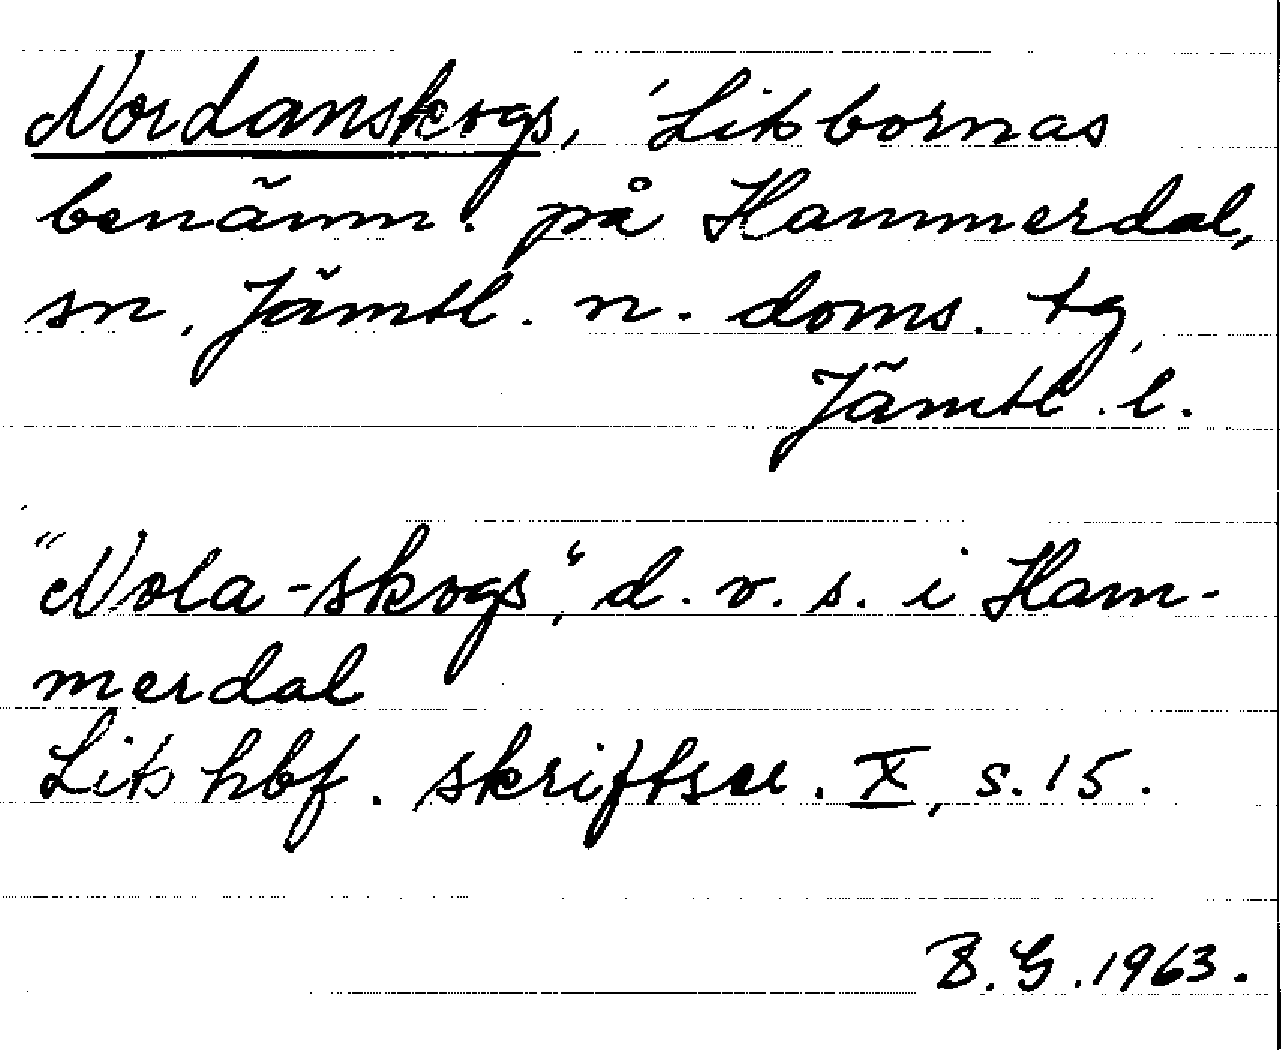 Nordanskogs, ʹLitsbornas
benämn. på Hammerdal,
sn, Jämtl. n. doms. tg,
Jämtl. l.
"Nola-skogs", d. v. s. i Ham-
merdal
Lits hbf. skriftser. X, s. 15.
B. G. 1963.